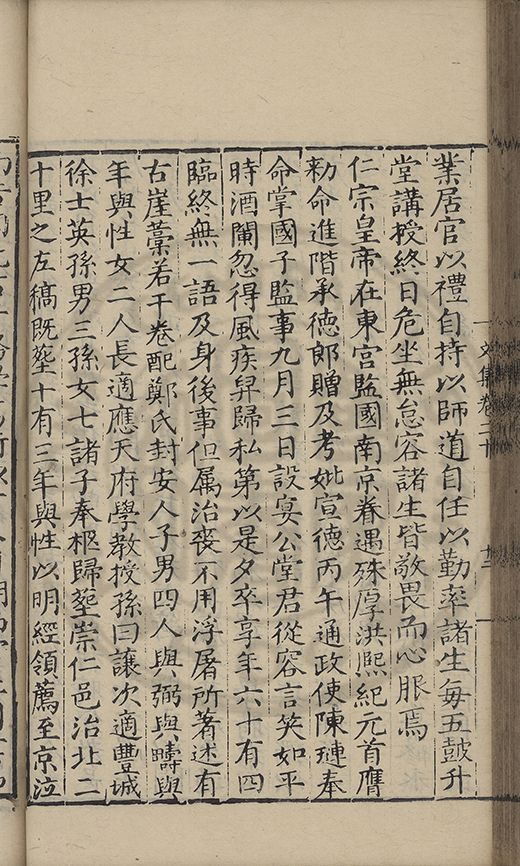 文集卷二十
業居官以禮自持以師道自任以勤率諸生每五鼓升
堂講授終日危坐無怠容諸生皆敬畏而心服焉
仁宗皇帝在東宮監國南京眷遇殊厚洪熙紀元首膺
勑命進階承德郎贈及考妣宣德丙午通政使陳璉奉
命掌國子監事九月三日設宴公堂君從容言笑如平
時酒闌忽得風疾舁歸私第以是夕卒享年六十有四
臨終無一語及身後事但属治喪不用浮屠所著述有
古崖藁若干卷配鄭氏封安人子男四人與弼與疇與
年與性女二人長適應天府學教授孫曰讓次適豐城
徐士英孫男三孫女七諸子奉柩歸塟崇仁邑治北二
十里之左稿既塟十有三年與性以明經領薦至京泣